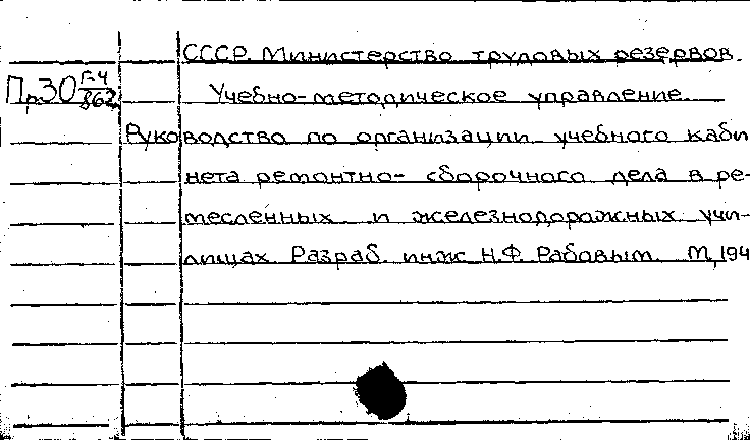 СССР. Министерство трудовых резервов.
Пр30 Г-4/862
Учебно-методическое управление.
Руководство по организации учебного каби
нета ремонтно- сборочного дела в ре-
месленных и железнодорожных учи-
лищах. Разраб. инж. Н.Ф. Рабовым. М, 194